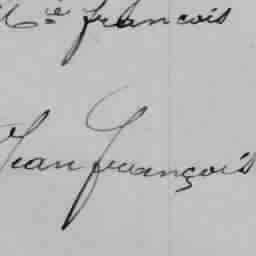 Mie francois
Jean françois